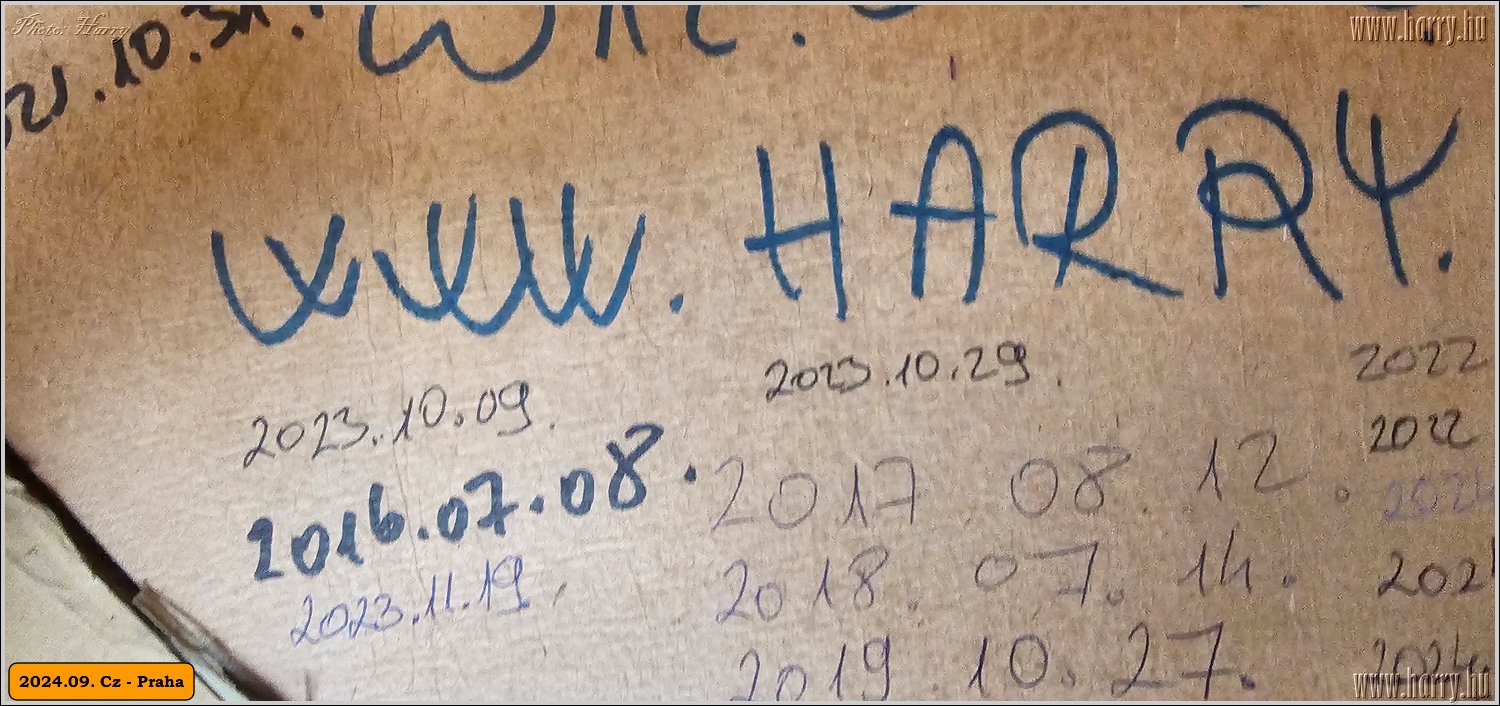 Photo: Harry
www.harry.hu
21.10.31.
WWW. HARRY.
2023.10.09. 2023.10.29. 2022
2022
2016.07.08. 2017.08.12.
2023.11.19. 2018.07.14. 202
2019.10.27. 2024.
2024.09. Cz - Praha
www.harry.hu